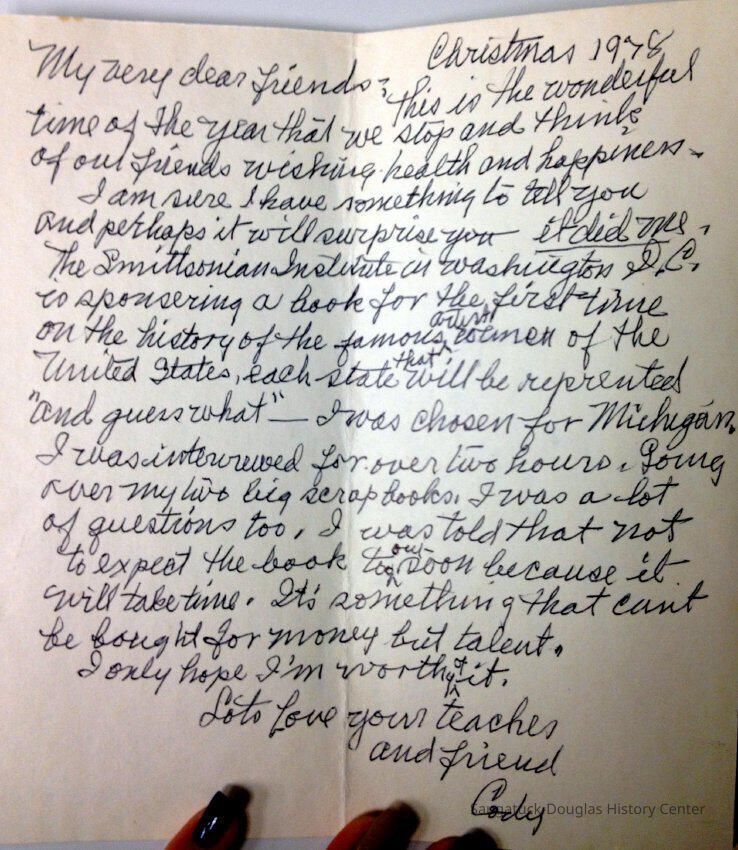 Christmas 1978
My very dear friends:
This is the wonderful
time of the year that we stop and think
of our friends wishing health and happiness.
I am sure I have something to tell you
and perhaps it will surprise you it did me.
The Smittsonian Institute in Washington D.C.
is sponsering a book for the first time
on the history of the famous artist women of the
United States, each state that will be reprented
"and guess what" — I was chosen for Michigan.
I was interviewed for over two hours. Going
over my two big scrapbooks. I was a lot
of questions too. I was told that not
to expect the book out soon because it
will take time. It's something that cant
be bought for money but talent.
I only hope I'm worthy of it.
Lots Love your teacher
and friend
Cody
Saugatuck-Douglas History Center